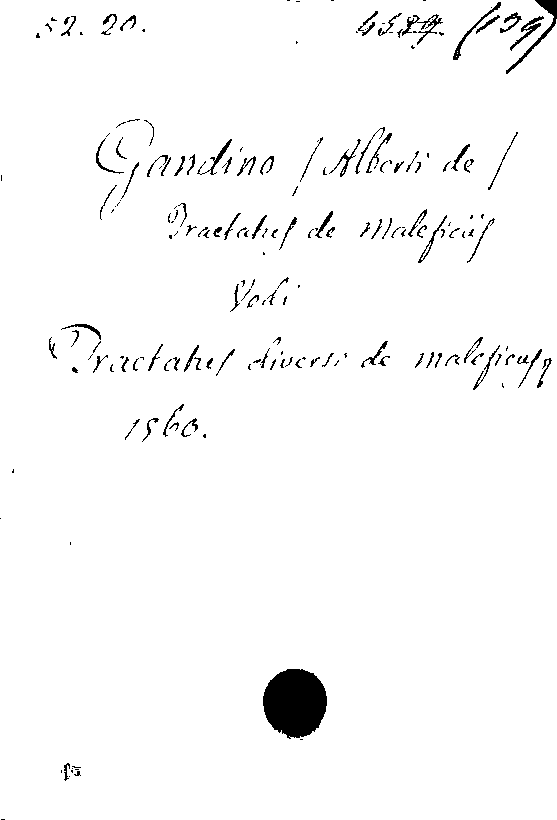 52. 20. (139)
Gandino / Alberti de /
Tractatus de maleficiis
Vedi
Tractatus diversi de maleficiis
1560.